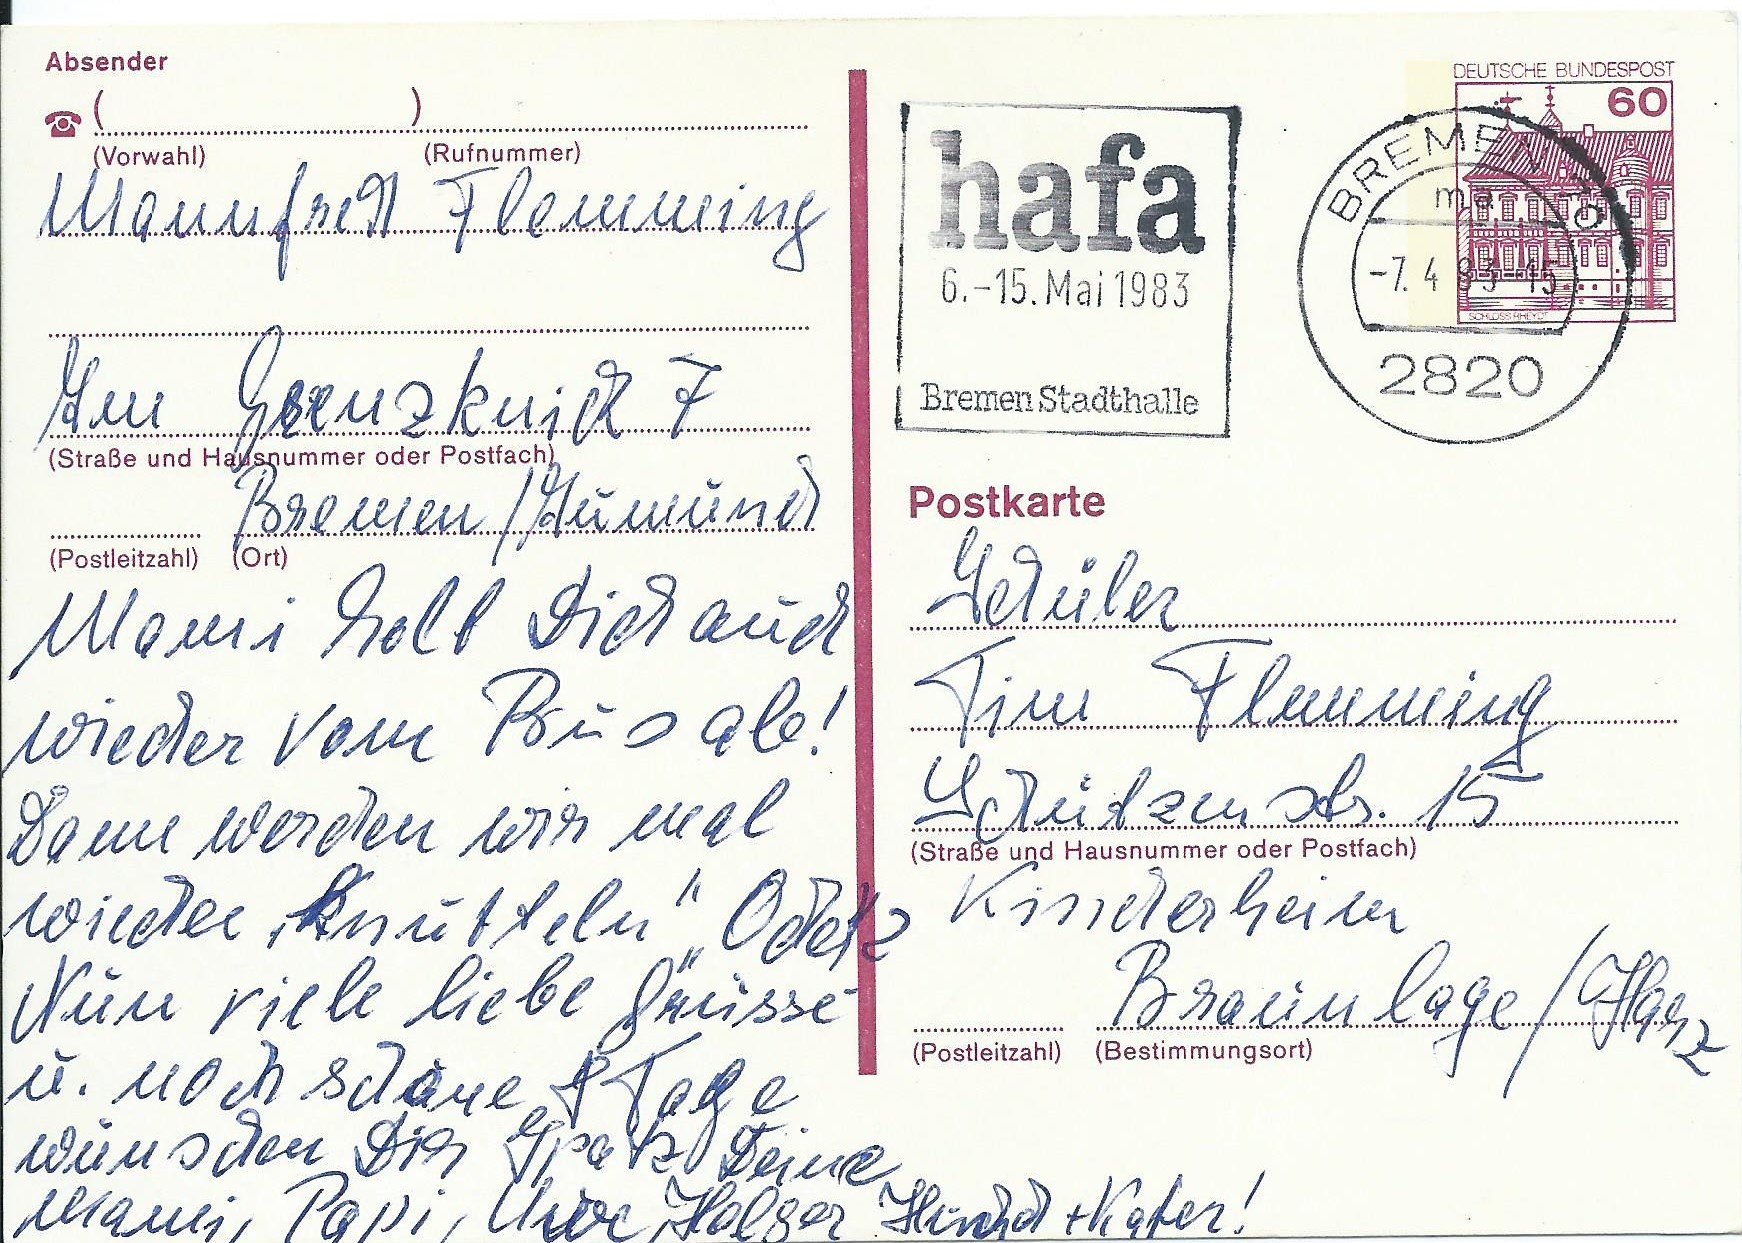 Absender
( )
(Vorwahl) (Rufnummer)
Mannfred Flemming
Am Grenzknick 7
(Straße und Hausnummer oder Postfach)
Bremen / Aumünd
(Postleitzahl) (Ort)
Mami holt Dich auch
wieder vom Bus ab!
Dann werden wir mal
wieder „Knütteln" Oder?
Nun viele liebe Grüsse
u. noch schöne Tage
wünschen Dir Spatz Deine
Mami, Papi, Holger Hund + Kater!
hafa
6.-15. Mai 1983
Bremen Stadthalle
BREMEN 70
ma
-7. 4 83-15
2820
DEUTSCHE BUNDESPOST
60
SCHLOSS RHEYDT
Postkarte
Schüler
Tim Flemming
Schützenstr. 15
(Straße und Hausnummer oder Postfach)
Kinderheim
Braunlage / Harz
(Postleitzahl) (Bestimmungsort)